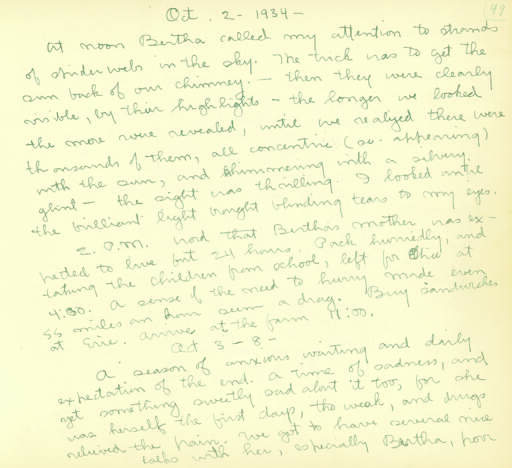 99
Oct. 2 - 1934 -
At noon Bertha called my attention to strands
of spider webs in the sky. The trick was to get the
sun back of our chimney. - then they were clearly
visible, by their highlights - the longer we looked
the more were revealed, until we realized there were
thousands of them, all concentric (or appearing)
with the sun, and shimmering with a silvery
glint - the sight was thrilling. I looked until
the brilliant light brought blinding tears to my eyes.
2. P.M. word that Berthas mother was ex-
pected to live but 24 hours. Pack hurriedly, and
taking the children from school, left for Ohio at
4:30. A sense of the need to hurry made even
55 miles an hour seem a drag. Buy sandwiches
at Erie. arrive at the farm 11:00.
Oct 3 - 8 -
A season of anxious waiting and daily
expectation of the end. A time of sadness, and
yet something sweetly sad about it too, for she
was herself the first days, tho weak, and drugs
relieved the pain. We got to have several nice
talks with her, especially Bertha, poor